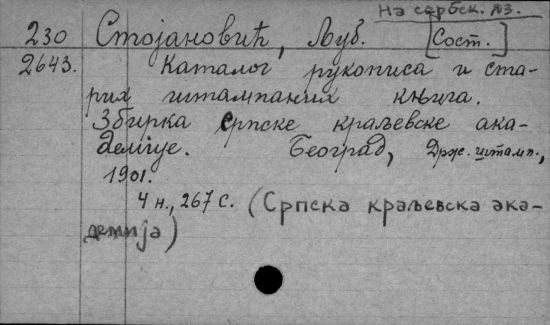 На сербск. яз.
230 Стојановић, Љуб. [Сост.]
2643. Каталог рукописа и ста-
рих штампаних књига.
Збирка српске краљевске ака-
демије. Београд, Држ. штамп.,
1901.
4 н., 267 с. (Српска краљевска ака-
демија)